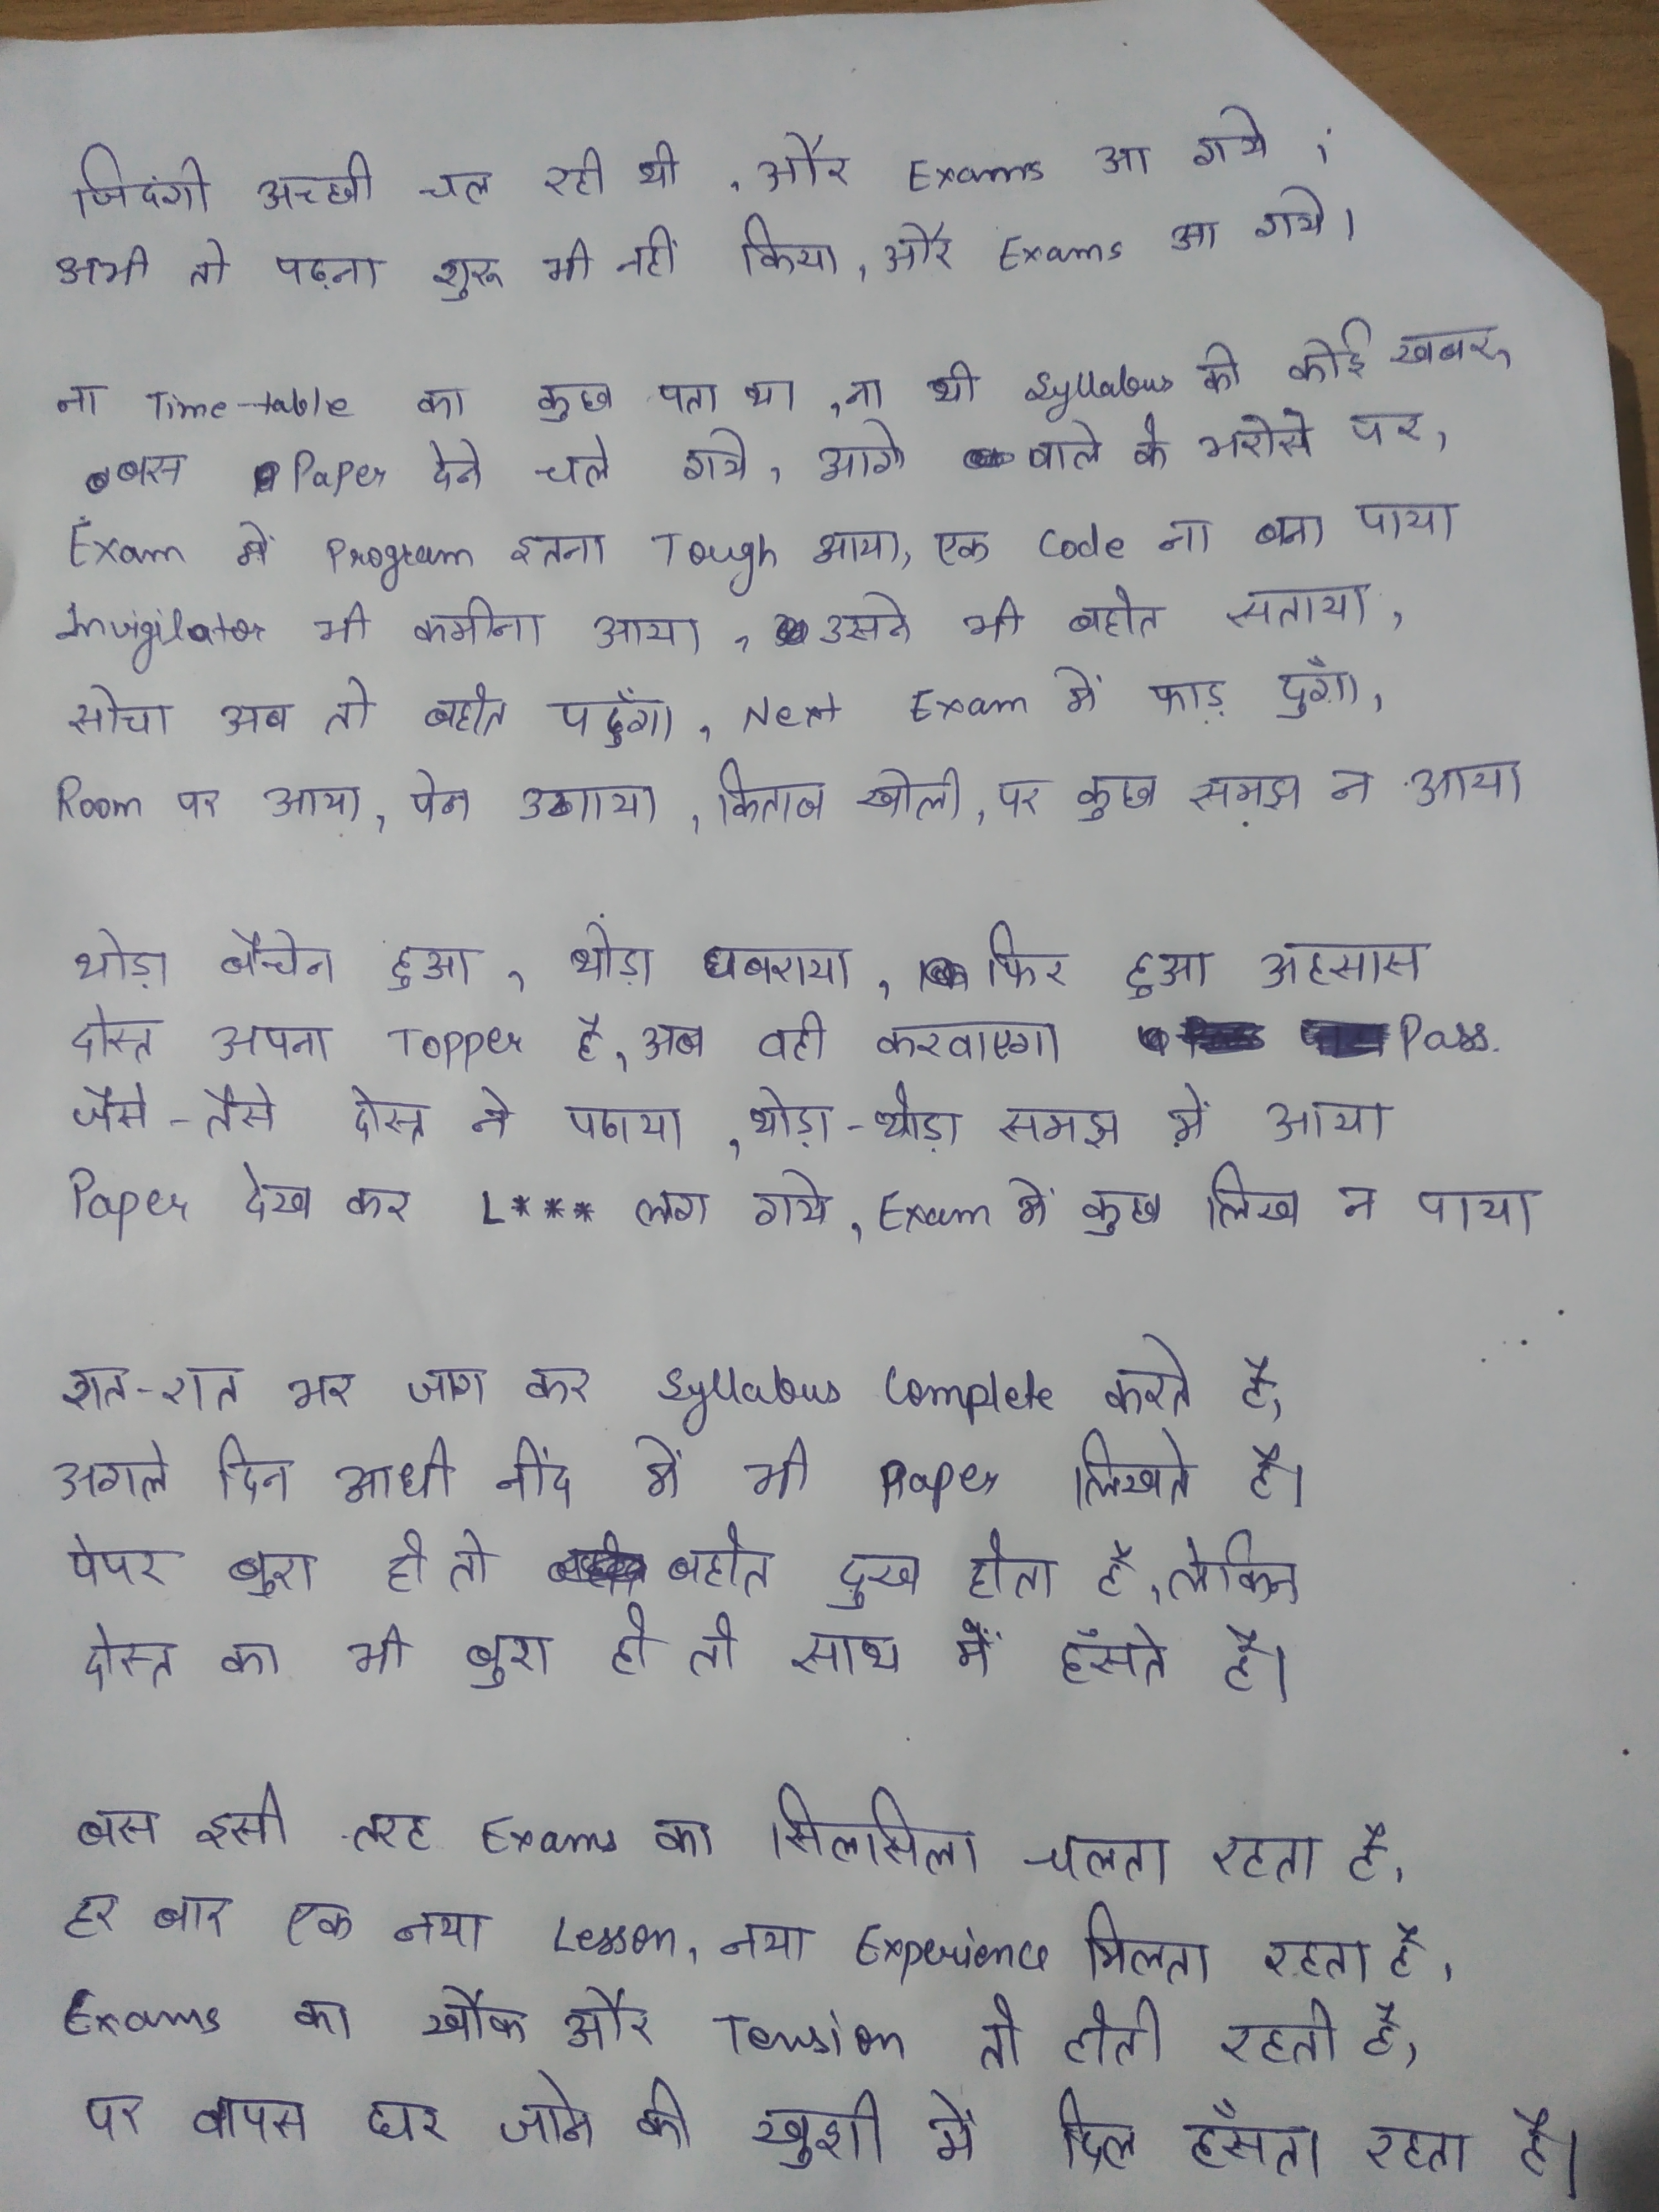 जिदंगी अच्छी चल रही थी, और Exams आ गये ;
अभी तो पढ़ना शुरू भी नहीं किया, और Exams आ गये।
ना Time-table का कुछ पता था, ना थी Syllabus की कोई खबर,
बस Paper देने चले गये, आगे वाले के भरोसे पर,
Exam में Program इतना Tough आया, एक Code ना बना पाया
Invigilator भी कमीना आया, उसने भी बहोत सताया,
सोचा अब तो बहोत पढुँगा, Next Exam में फाड़ दुँगा,
Room पर आया, पेन उठाया, किताब खोली, पर कुछ समझ न आया
थोड़ा बैचेन हुआ, थोड़ा घबराया, फिर हुआ अहसास
दोस्त अपना Topper है, अब वही करवाएगा Pass.
जैसे-तैसे दोस्त ने पढाया, थोड़ा-थोड़ा समझ में आया
Paper देख कर L*** लग गये, Exam में कुछ लिख न पाया
रात-रात भर जाग कर Syllabus Complete करते है,
अगले दिन आधी नींद में भी Paper लिखते है।
पेपर बुरा हो तो बहोत दुख होता है, लेकिन
दोस्त का भी बुरा हो तो साथ में हँसते है।
बस इसी तरह Exams का सिलसिला चलता रहता है,
हर बार एक नया Lesson, नया Experience मिलता रहता है,
Exams का खौफ और Tension तो होती रहती है,
पर वापस घर जाने की खुशी में दिल हँसता रहता है।